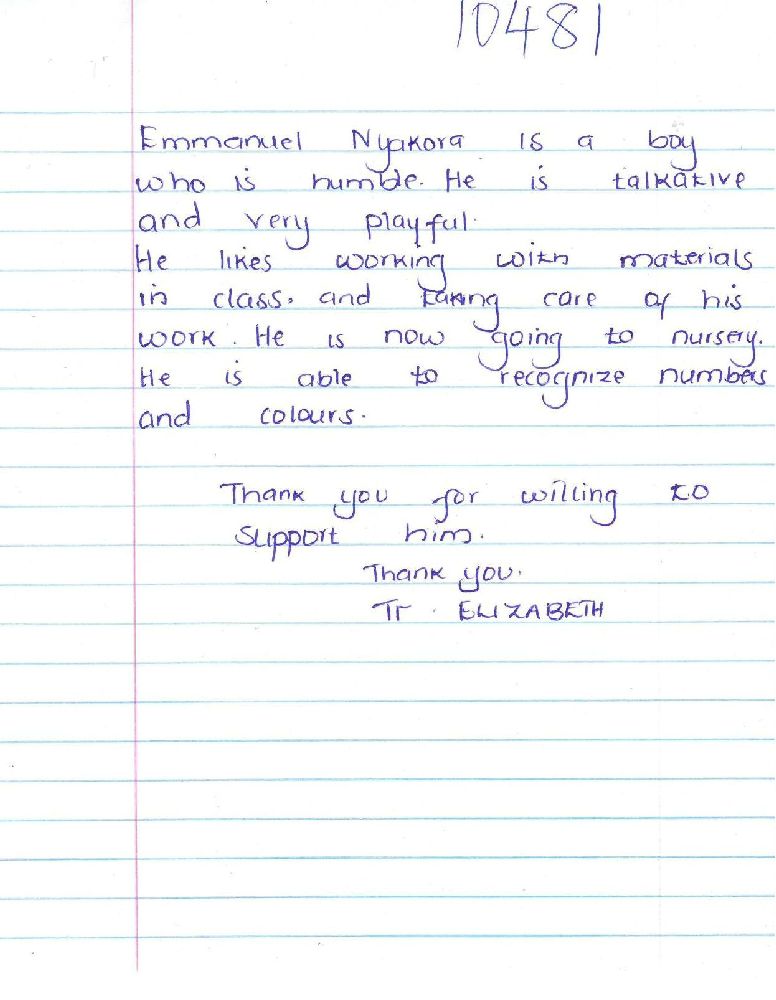 10481
Emmanuel Nyakora is a boy
who is humble. He is talkative
and very playful.
He likes working with materials
in class. and taking care of his
work. He is now going to nursery.
He is able to recognize numbers
and colours.
Thank you for willing to
support him.
Thank you.
Tr. ELIZABETH